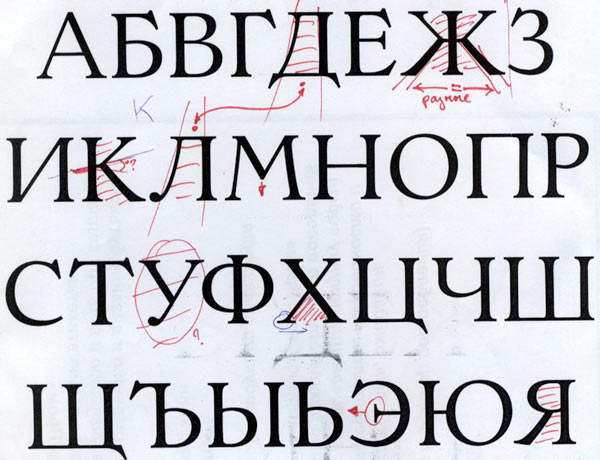 АБВГДЕЖЗ
=
разные
К
ИКЛМНОПР
?
СТУФХЦЧШ
?
ЩЪЫЬЭЮЯ